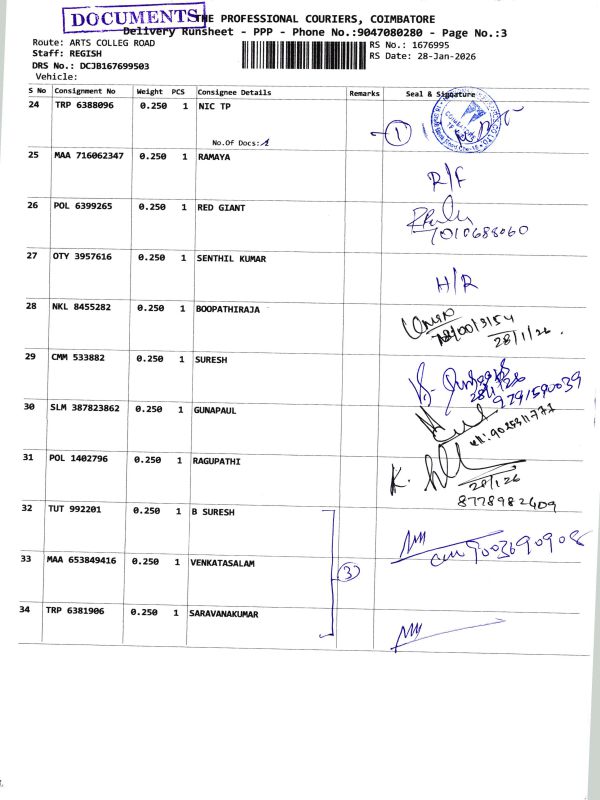 DOCUMENTS
THE PROFESSIONAL COURIERS, COIMBATORE
Delivery Runsheet - PPP - Phone No.:9047080280 - Page No.:3
Route: ARTS COLLEG ROAD
RS No.: 1676995
Staff: REGISH
RS Date: 28-Jan-2026
DRS No.: DCJB167699503
Vehicle:
S No Consignment No Weight PCS Consignee Details Remarks Seal & Signature
24 TRP 6388096 0.250 1 NIC TP
1
No.Of Docs:1
25 MAA 716062347 0.250 1 RAMAYA
R/F
26 POL 6399265 0.250 1 RED GIANT
7010688060
27 OTY 3957616 0.250 1 SENTHIL KUMAR
H/R
28 NKL 8455282 0.250 1 BOOPATHIRAJA
28/1/26.
29 CMM 533882 0.250 1 SURESH
28/1/26
9791590039
30 SLM 387823862 0.250 1 GUNAPAUL
31 POL 1402796 0.250 1 RAGUPATHI
K.
28/1/26
8778982409
32 TUT 992201 0.250 1 B SURESH
9003690908
33 MAA 653849416 0.250 1 VENKATASALAM
3
34 TRP 6381906 0.250 1 SARAVANAKUMAR